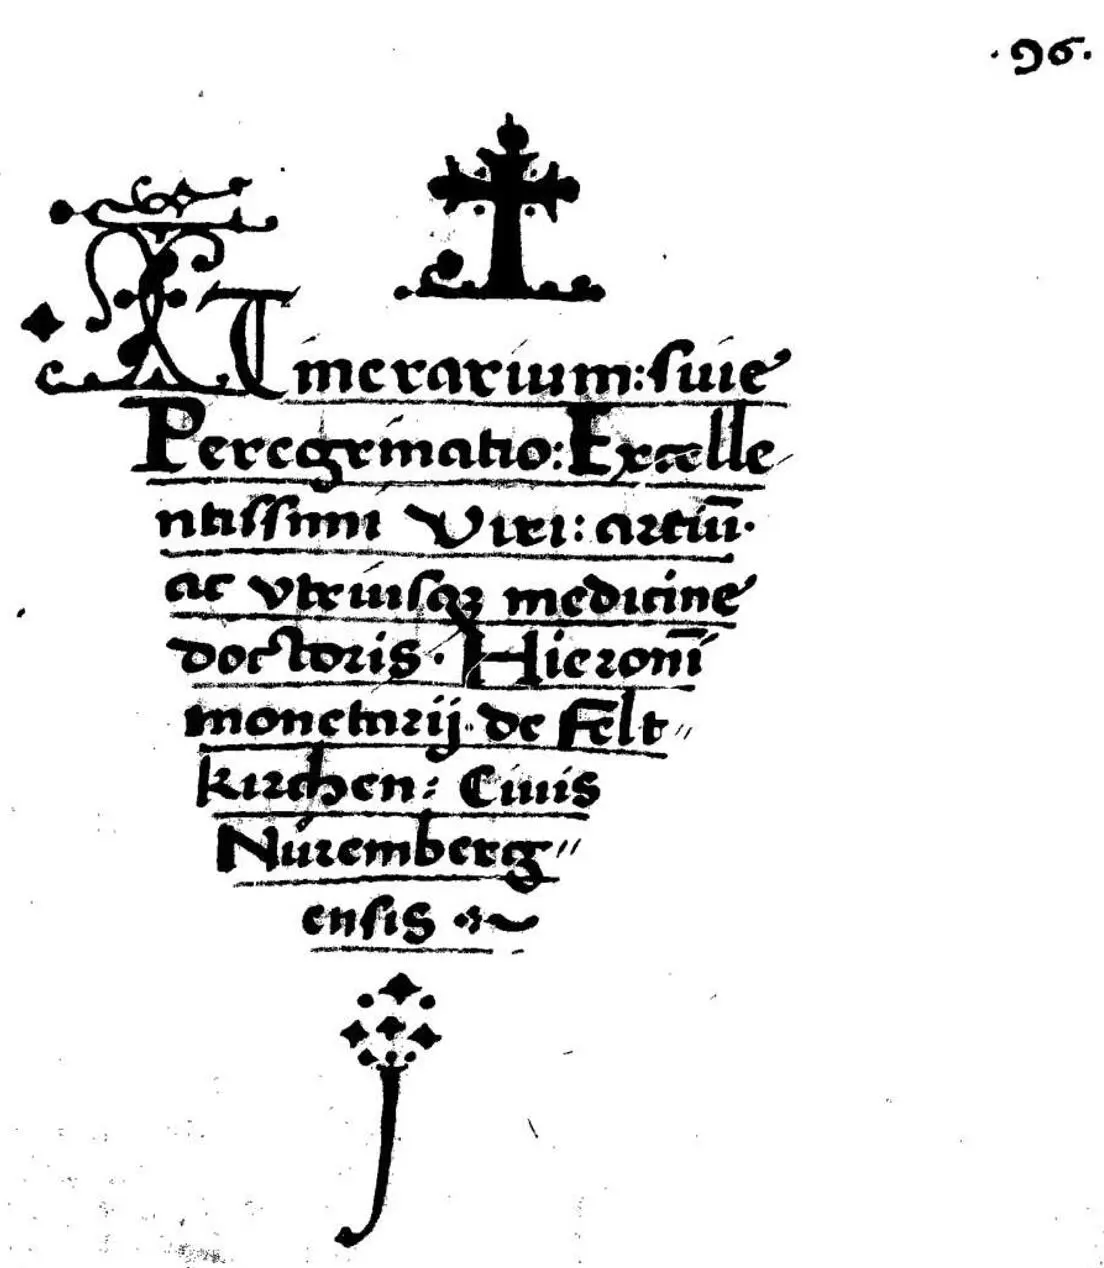 ·96·
ITinerarium: siue
Peregrinatio: Excelle
ntissimi Viri: artiū·
ac vtriusqꝫ medicine
doctoris· Hieronī
monetarij· de Felt〃
kirchen: Ciuis
Nuremberg〃
ensis